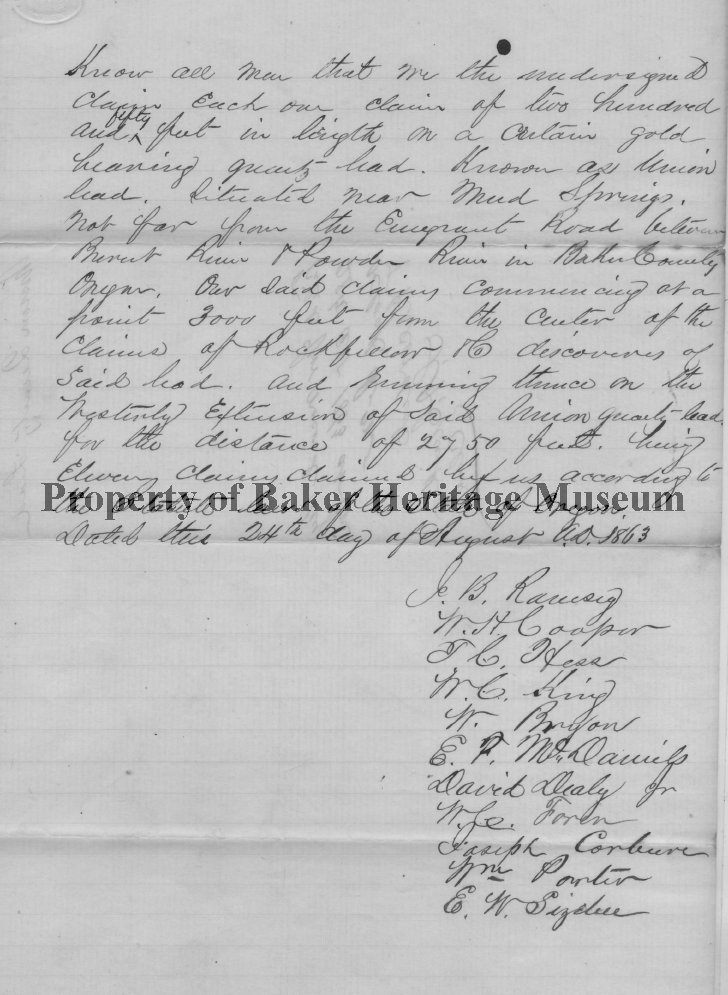 Know all men that we the undersigned
claim Each one claim of two hundred
and fifty feet in length on a certain gold
bearing quartz lead. Known as Union
lead. Situated near Mud Springs.
Not far from the Emigrant Road between
Burnt River & Powder River in Baker County
Oregon. Our said claims commencing at a
point 3000 feet from the center of the
Claims of Rockfellow & C discoveres of
Said lead. and running thence on the
Westerly Extension of said Union quartz lead
for the distance of 2750 feet. being
Eleven claims claimed by us according to
the laws of the State of Oregon.
Property of Baker Heritage Museum
Dated this 24th day of August A.D. 1863
J. B. Ramsey
W. H. Cooper
T C. Hess
W. C. King
W. Bryon
E. F. McDaniels
David Dealy Jr
W.
Joseph
Wm Porter
E. W.